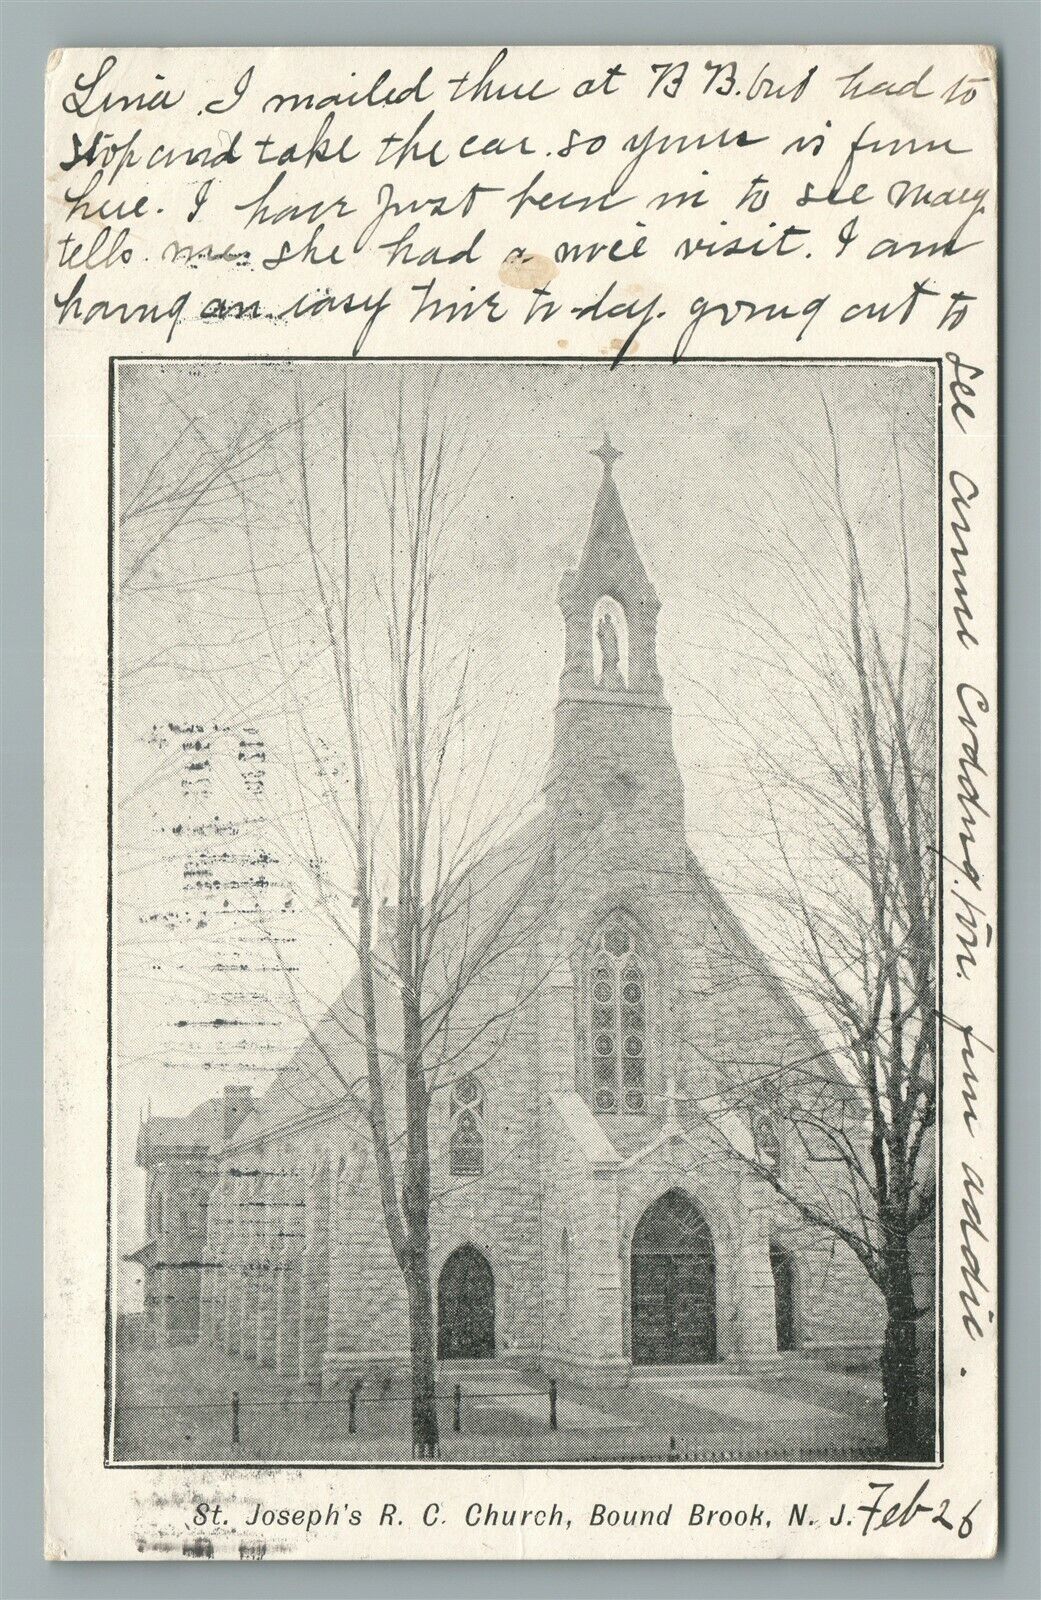 Lina. I mailed three at B B. but had to
stop and take the car. so yours is from
here. I have just been in to see Mary
tells me she had a nice visit. I am
having an easy time to-day. going out to
see Anna Codding. from Addie.
St. Joseph's R. C. Church, Bound Brook, N. J. Feb 26